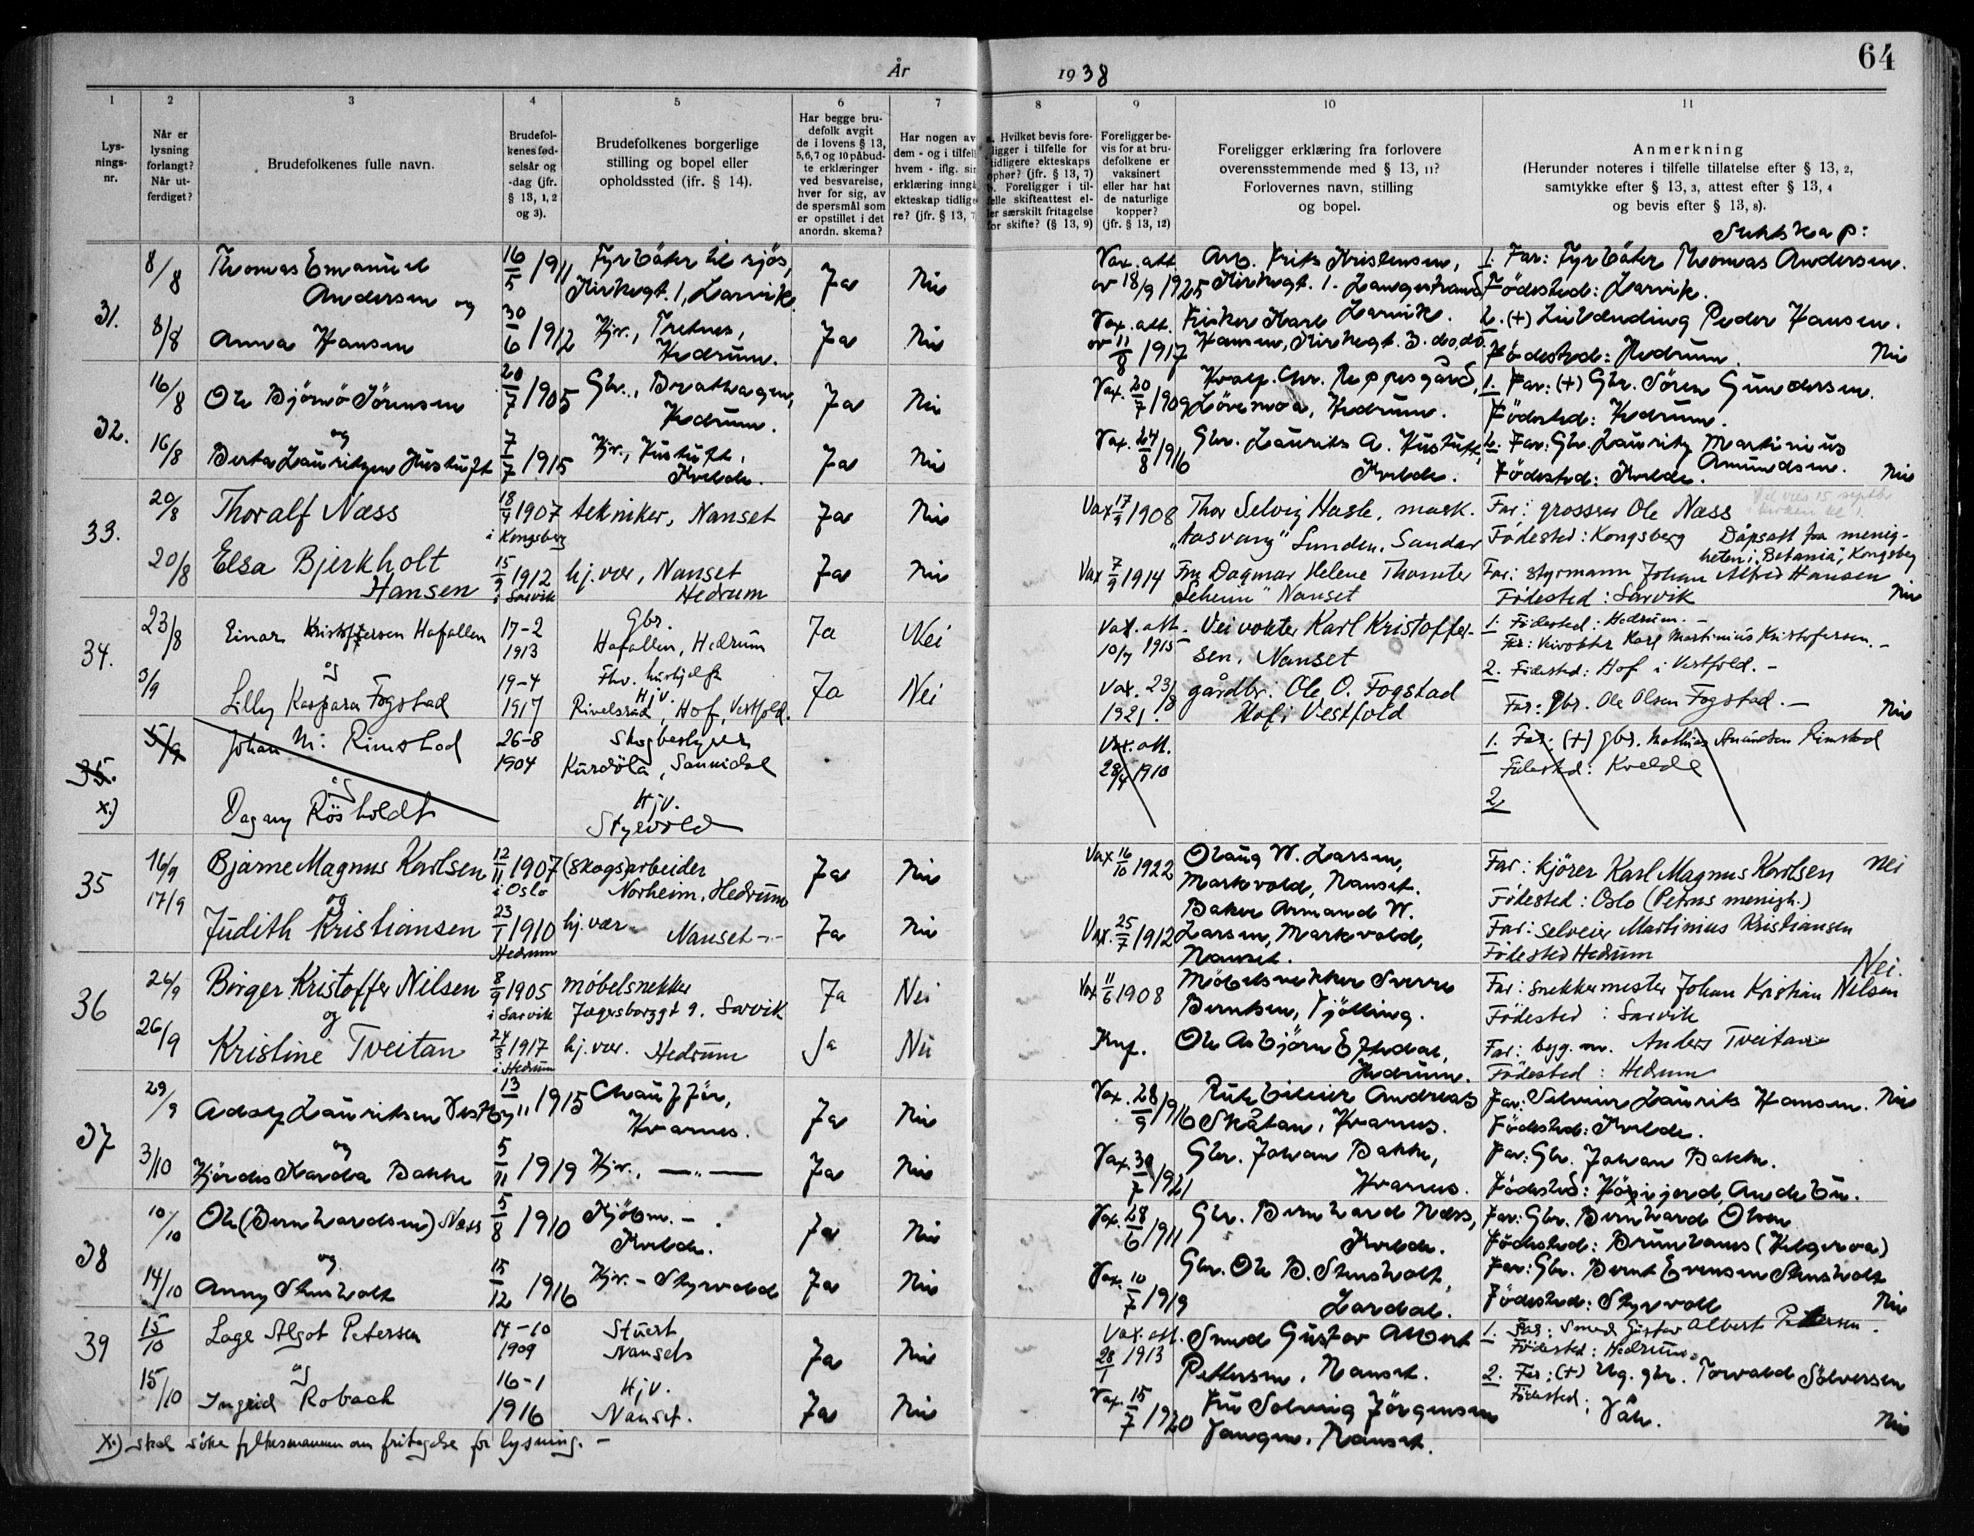 64
År 1938
1 2 3 4 5 6 7 8 9 10 11
Lysningsnr.
Når er lysning forlangt? Når utferdiget?
Brudefolkenes fulle navn.
Brudefolkenes fødselsår og -dag (jfr. § 13, 1, 2 og 3).
Brudefolkenes borgerlige stilling og bopel eller opholdssted (ifr. § 14).
Har begge brudefolk avgit de i lovens § 13, 5, 6, 7 og 10 påbudte erklæringer ved besvarelse, hver for sig, av de spørsmål som er opstillet i det anordn. skema?
Har nogen av dem - og i tilfelle hvem - iflg. sin erklæring inngå ekteskap tidligere? (jfr. § 13, 7
Hvilket bevis foreligger i tilfelle for tidligere ekteskaps ophør? (jfr. § 13, 7)
Foreligger i tilfelle skifteattest eller særskilt fritagelse for skifte? (§ 13, 9)
Foreligger bevis for at brudefolkene er vaksinert eller har hat de naturlige kopper? (jfr. § 13, 12)
Foreligger erklæring fra forlovere overensstemmende med § 13, 11? Forlovernes navn, stilling og bopel.
Anmerkning (Herunder noteres i tilfelle tillatelse efter § 13, 2, samtykke efter § 13, 3, attest efter § 13, 4 og bevis efter § 13, 8).
Slektskap:
31.
8/8 Thomas Emanuel Andersen og 16/5 1911 Fyrbøter til sjøs, Kirkegt. 1, Larvik. Ja Nei Vax. att. av 18/9 1925 Arb. Frits Kristensen, Kirkegt. 1. Langestrand, Larvik. 1. Far: Fyrbøter Thomas Andersen. Fødested: Larvik.
8/8 Anna Hansen 30/6 1912 Hjv., Hedrum. Ja Nei Vax. att. av 11/8 1917 Fisker Karl Hansen, Kirkegt. 3. do, do. 2. (+) Peder Hansen. Fødested: Hedrum. Nei
32.
16/8 Ole Bjørnø Sørensen og 20/7 1905 Gbr., Bratthagen, Hedrum. Ja Nei Vax. 20/7 1909 Løvemoa, Hedrum. 1. Far: (+) Gbr. Søren Gundersen. Fødested: Hedrum.
16/8 Berta Lauritzen Hustuft 7/7 1915 Hjv., Hustuft, Kvelde. Ja Nei Vax. 24/8 1916 Gbr. Laurits A. Hustuft, Kvelde. 2. Far: Gbr. Lauritz Martinius Amundsen. Fødested: Kvelde. Nei
33.
20/8 Thoralf Næss 18/4 1907 i Kongsberg tekniker, Nanset Ja Nei Vax 17/9 1908 Thor Selvig Hasle, mask. "Aasvang" Lunden, Sandar Far: grosserer Ole Næss Fødested: Kongsberg Dåpsatt fra menigheten i "Betania", Kongsberg
20/8 Elsa Bjerkholt Hansen 15/9 1912 i Larvik hj.vær, Nanset Hedrum Ja Nei Vax 7/9 1914 Fru Dagmar Helene Thomter "Solheim" Nanset Far: styrmann Johan Alfred Hansen Fødested: Larvik Nei
34.
23/8 Einar Kristoffersen Hafallen og 17-2 1913 Gbr. Hafallen, Hedrum Ja Nei Vax. att. 10/7 1915 Veivokter Karl Kristoffersen, Nanset 1. Fødested: Hedrum. - Far: Veivokter Karl Martinius Kristofersen. -
3/9 Lilly Kaspara Fogstad 19-4 1917 Hjv. Rivelsrød, Hof, Vestfold. Ja Nei Vax. 23/8 1921. gårdbr. Ole O. Fogstad Hof i Vestfold 2. Fødested: Hof i Vestfold. - Far: gbr. Ole Olsen Fogstad. - Nei
35. x.)
5/9 Johan M. Rimstad og 26-8 1904 Skogbestyrer Kurdøla, Sannidal Vax. att. 28/4 1910 1. Far: (+) gbr. Mathias Amundsen Rimstad Fødested: Kvelde
Dagny Røsholdt Hjv. Styrvold 2.
35
16/9 Bjarne Magnus Karlsen og 12/11 1907 i Oslo (skogs)arbeider Norheim, Hedrum Ja Nei Vax 16/10 1922 Olaug W. Larsen, Markvold, Nanset. Far: kjører Karl Magnus Karlsen Nei Fødested: Oslo (Petrus menigh.)
17/9 Judith Kristiansen 23/1 1910 Hedrum hj.vær. Nanset -"- Ja Nei Vax. 25/7 1912 Baker Armand W. Larsen, Markvold, Nanset. Far: selveier Martinius Kristiansen Fødested Hedrum
36
26/9 Birger Kristoffer Nilsen og 8/9 1905 i Larvik møbelsnekker Jegersborggt 9. Larvik Ja Nei Vax 11/6 1908 Møbelsnekker Sverre Berntsen, Tjølling. Far: snekkermester Johan Kristian Nilsen Nei. Fødested: Larvik
26/9 Kristine Tveitan 24/3 1917 i Hedrum hj.vær. Hedrum Ja Nei Knf. Ole Asbjørn Eftedal, Hedrum. Far: byg.m. Anders Tveitan Fødested: Hedrum
37
29/9 Adolf Lauritsen og 13/11 1915 Chauffør, Kvarnes. Ja Nei Vax. 28/9 1916 Rutebileier Andreas Skåtan, Kvarnes. Far: Selveier Laurits Hansen. Nei Fødested: Kvelde.
3/10 Hjørdis Bakke 5/11 1919 Hjv., —"— Ja Nei Vax. 30/7 1921 Gbr. Johan Bakke, Kvarnes. Far: Gbr. Johan Bakke. Fødested: Andebu.
38
10/10 Ole (Bernhardsen) Næss og 5/8 1910 Kjøbm. - Kvelde. Ja Nei Vax. 28/6 1911 Gbr. Bernhard Næss, Kvelde. Far: Gbr. Bernhard Olsen Fødested: Brunlanes (Helgeroa)
14/10 Anny Stensholt 15/12 1916 Hjv. - Styrvold Ja Nei Vax. 10/7 1919 Gbr. Ole B. Stensholt, Lardal. Far: Gbr. Bernt Evensen Stensholt Fødested: Styrvoll Nei
39
15/10 Lage Algot Petersen og 14-10 1909 Stuert Nanset Ja Nei Vax. att. 28/1 1913 Smed Gustav Albert Pettersen, Nanset. 1. Far: Smed Gustav Albert Pettersen. Fødested: Hedrum.
15/10 Ingrid Robach 16-1 1916 Hjv. Nanset. Ja Nei Vax. 15/7 1920 Fru Solveig Jørgensen Nanset. 2. Far: (+) Ug. gbr. Torvald Sølversen Fødested: Våle. Nei
x.) skal søke fylkesmannen om fritagelse for lysning. -